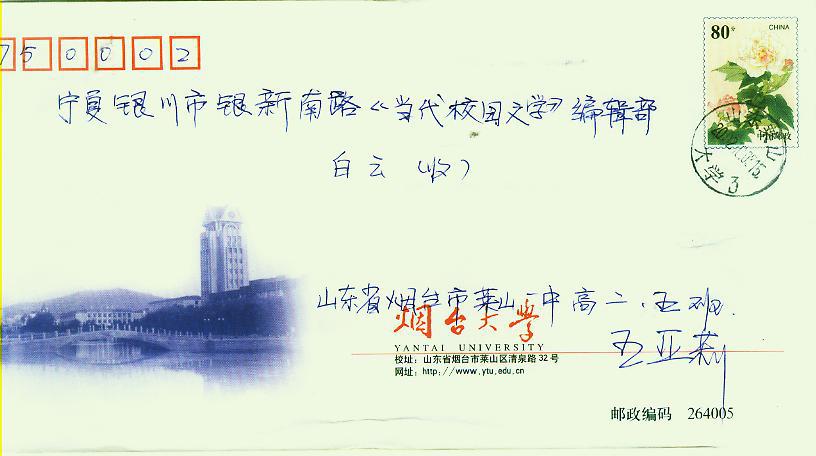 750002
80分
CHINA
宁夏银川市银新南路《当代校园文学》编辑部
白云（收）
大学3
山东省烟台市莱山一中高二.五班.
烟台大学
YANTAI UNIVERSITY
王亚莉
校址：山东省烟台市莱山区清泉路32号
网址：http://www.ytu.edu.cn
邮政编码 264005